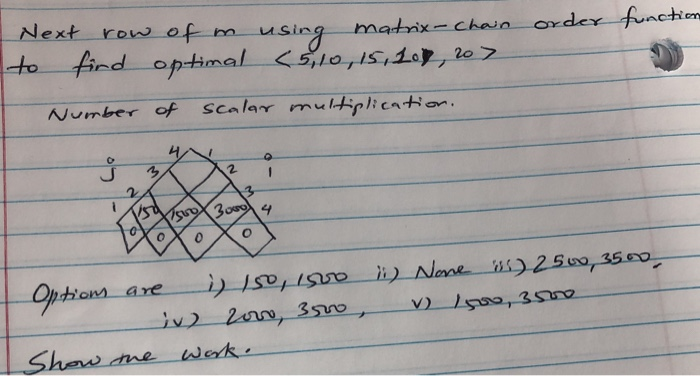 Next row of m using matrix-chain order function
to find optimal <5,10,15,10, 20>
Number of scalar multiplication.
4 1
j 3 2 i
2 3
1 150 1500 3000 4
0 0 0 0
Options are i) 150, 1500 ii) None iii) 2500, 3500
iv) 2000, 3500, v) 1500, 3500
Show me work.